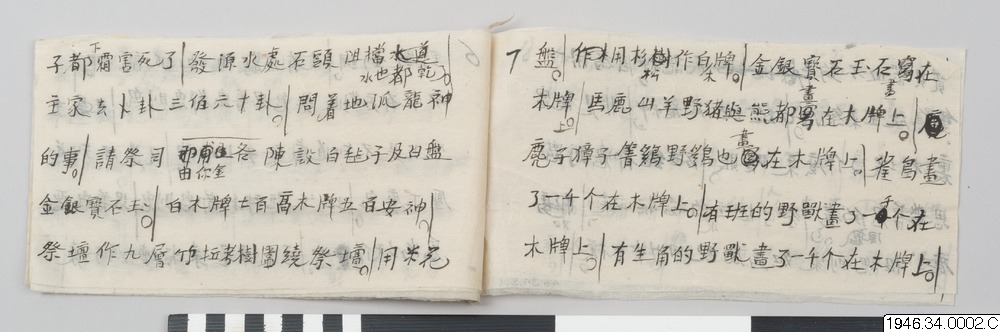 子都下霜害死了發源水處石頭阻擋水道
水也都乾
主家去卜卦三佰六十卦問着地孤龍神
的事請祭司 各陳設白毡子及曰盤
由你金
金銀寶石玉白木牌七百高木牌五百安神
祭壇作九層竹拉考樹圍繞祭壇用米花
7 盤作木用杉樹作白牌金銀寶石玉石寫在
松 木 畫
木牌上馬鹿山羊野猪與熊都寫在木牌上
畫
鹿子獐子箐鷄野鷄也 在木牌上雀鳥畫
畫
了一千个在木牌上有班的野獸畫了一千个在
木牌上有生角的野獸畫了一千个在木牌上
1946.34.0002.C